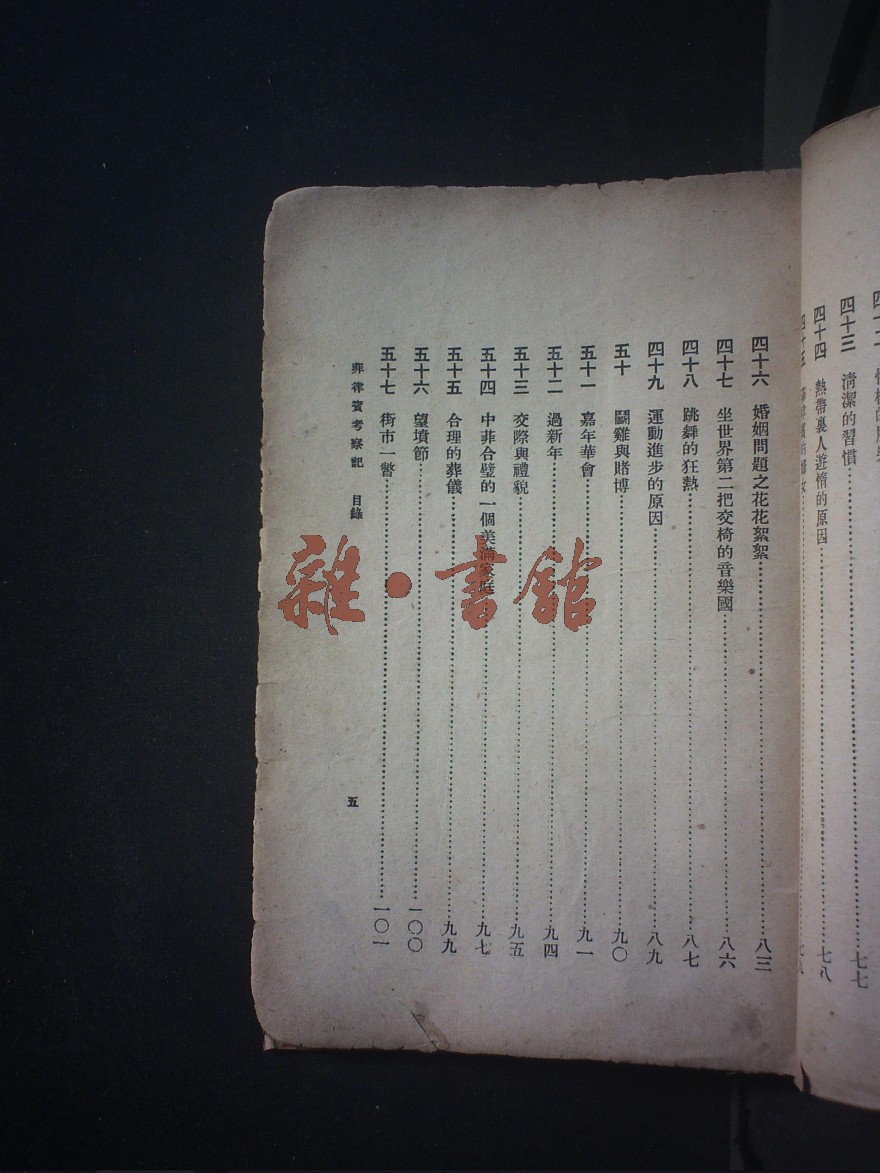 四十三 清潔的習慣……七七
四十四 熱帶裏人遊惰的原因……七八
四十六 婚姻問題之花花絮絮……八三
四十七 坐世界第二把交椅的音樂國……八六
四十八 跳舞的狂熱……八七
四十九 運動進步的原因……八九
五十 鬬雞與賭博……九〇
五十一 嘉年華會……九一
五十二 過新年……九四
五十三 交際與禮貌……九五
五十四 中菲合璧的一個美滿家庭……九七
五十五 合理的葬儀……九九
五十六 望墳節……一〇〇
五十七 街市一瞥……一〇一
菲律賓考察記 目錄 五
雜·書館